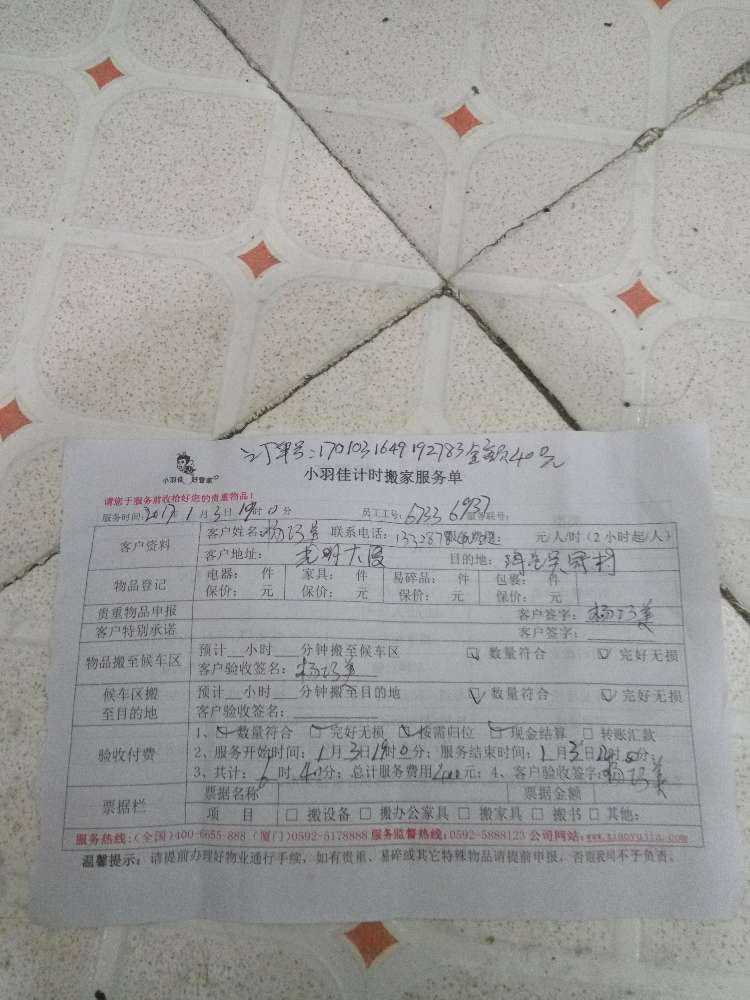 订单号:170103164919 2783 金额40元
小羽佳 好管家
小羽佳计时搬家服务单
请您于服务前收拾好您的贵重物品!
服务时间:2017年1月3日19时0分 员工工号:6733 6937 服务联号:
客户资料 客户姓名:杨巧美 联系电话:133287 元/人/时(2小时起/人)
客户地址:光明大厦 目的地:
物品登记 电器: 件 家具: 件 易碎品: 件 包裹: 件
保价: 元 保价: 元 保价: 元 保价: 元
贵重物品申报 客户签字:杨巧美
客户特别承诺 客户签字:
物品搬至候车区 预计__小时___分钟搬至候车区 ☑ 数量符合 ☑ 完好无损
客户验收签名:杨巧美
候车区搬至目的地 预计__小时___分钟搬至目的地 ☑ 数量符合 ☑ 完好无损
客户验收签名:
验收付费 1、☑数量符合 ☑完好无损 ☑按需归位 ☑现金结算 □转账汇款
2、服务开始时间:1月3日19时0分;服务结束时间:1月3日 时 分;
3、共计: 时40分;总计服务费用 元;4、客户验收签字:杨巧美
票据栏 票据名称 票据金额
项 目 □ 搬设备 □ 搬办公家具 □ 搬家具 □ 搬书 □ 其他:
服务热线:(全国)400-6655-888 (厦门)0592-5178888 服务监督热线:0592-5888123 公司网站:www.xiaoyujia.com
温馨提示:请提前办理好物业通行手续,如有贵重、易碎或其它特殊物品请提前申报,否则我司不予负责。